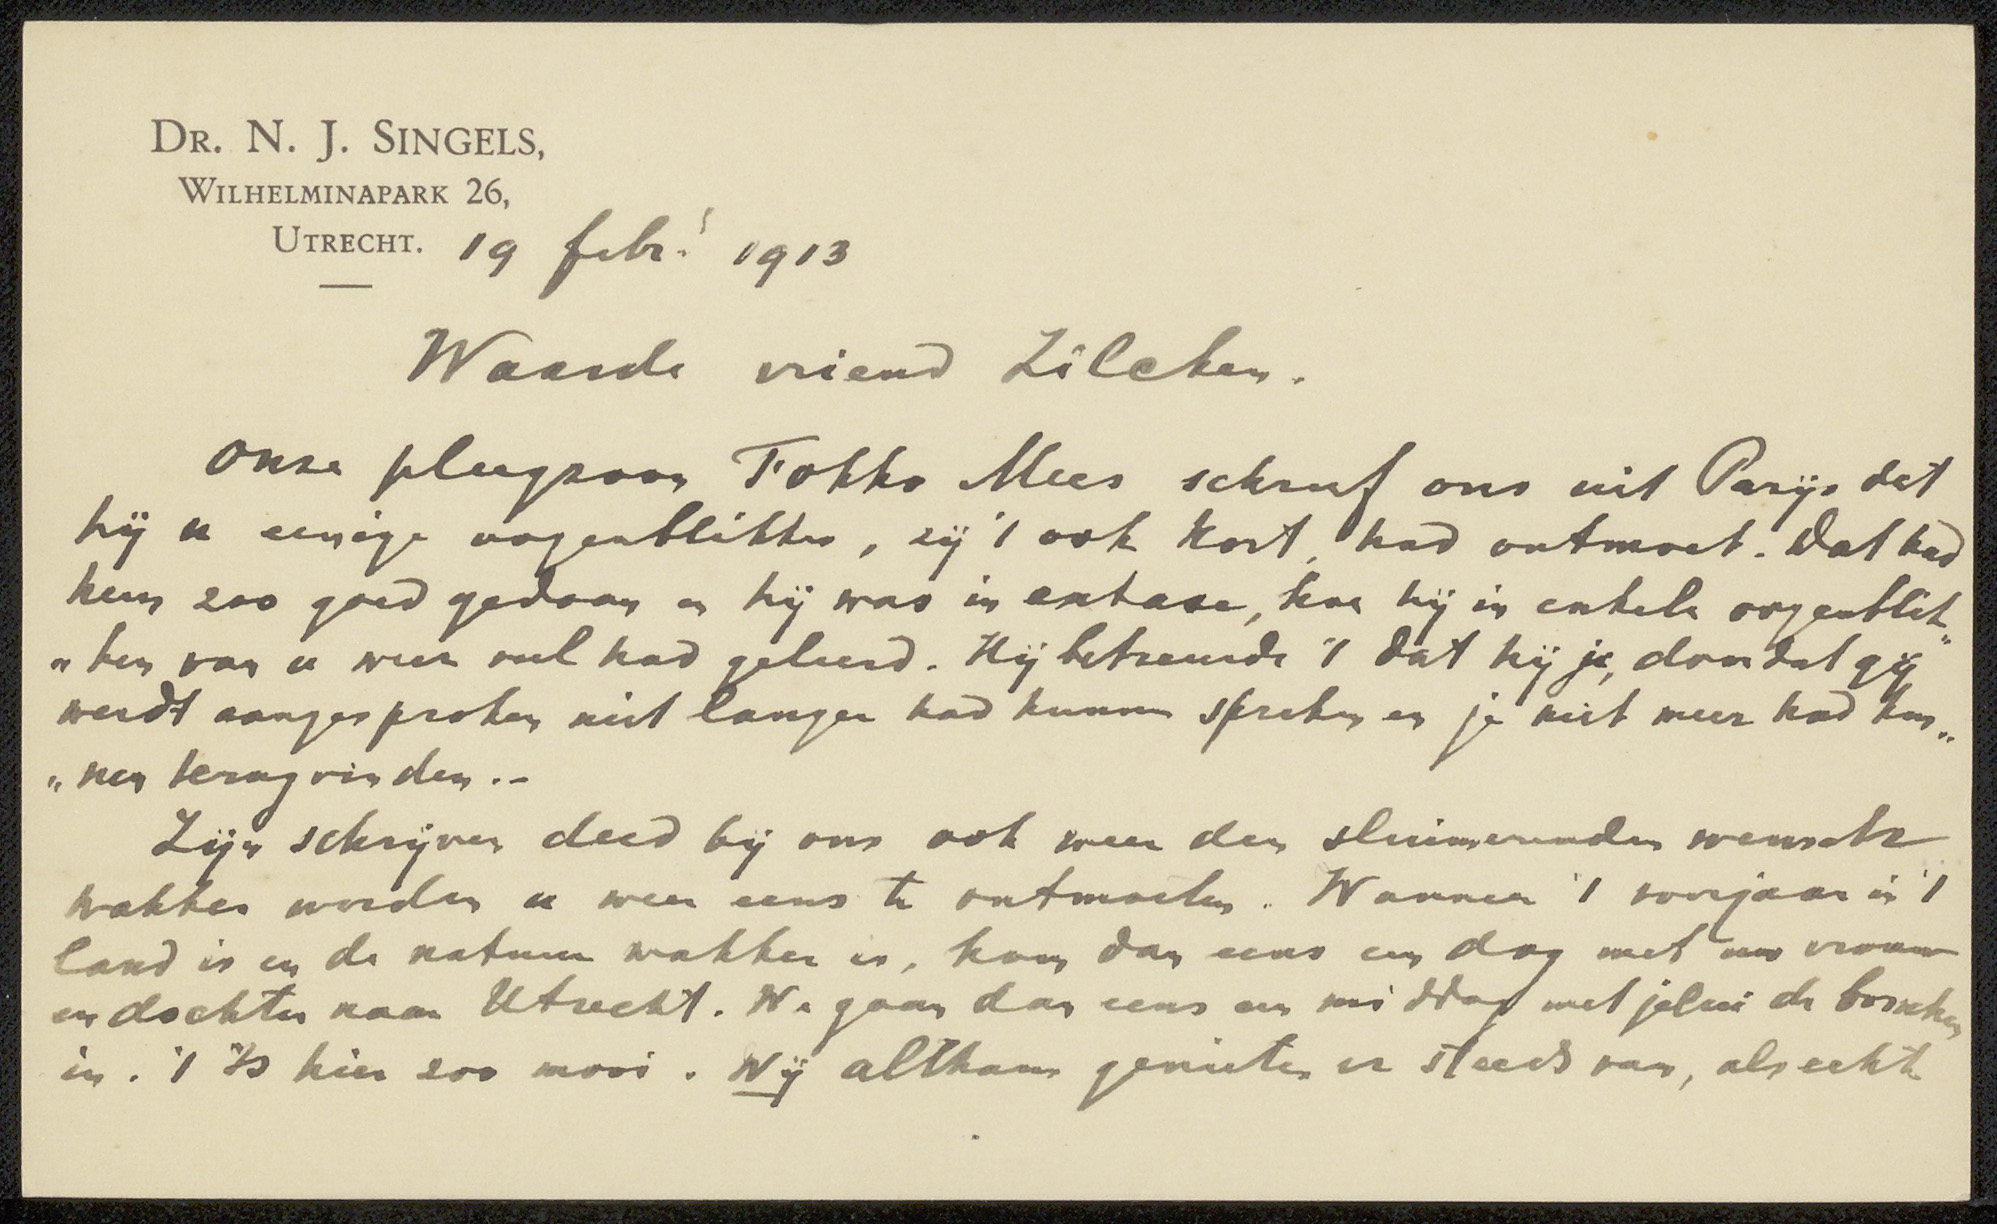 DR. N. J. SINGELS,
WILHELMINAPARK 26,
UTRECHT. 19 febr. 1913
Waarde vriend Zilcken.
Onze pleegzoon Fokko Mees schreef ons uit Parijs dat
hij u eenige oogenblikken, zij 't ook kort, had ontmoet. Dat had
hem zoo goed gedaan en hij was in extase, hoe hij in enkele oogenblik„
„ken van u weer veel had geleerd. Hij betreurde 't dat hij je, doordat gij
werdt aangesproken niet langer had kunnen spreken en je niet meer had kun„
„nen terugvinden. –
Zijn schrijven deed bij ons ook weer den sluimerenden wensch
wakker worden u weer eens te ontmoeten. Wanneer 't voorjaar in 't
land is en de natuur wakker is, kom dan eens een dag met uw vrouw
en dochter naar Utrecht. We gaan dan eens een middag met jelui de bosschen
in. 't Is hier zoo mooi. Wij althans genieten er steeds van, als echte